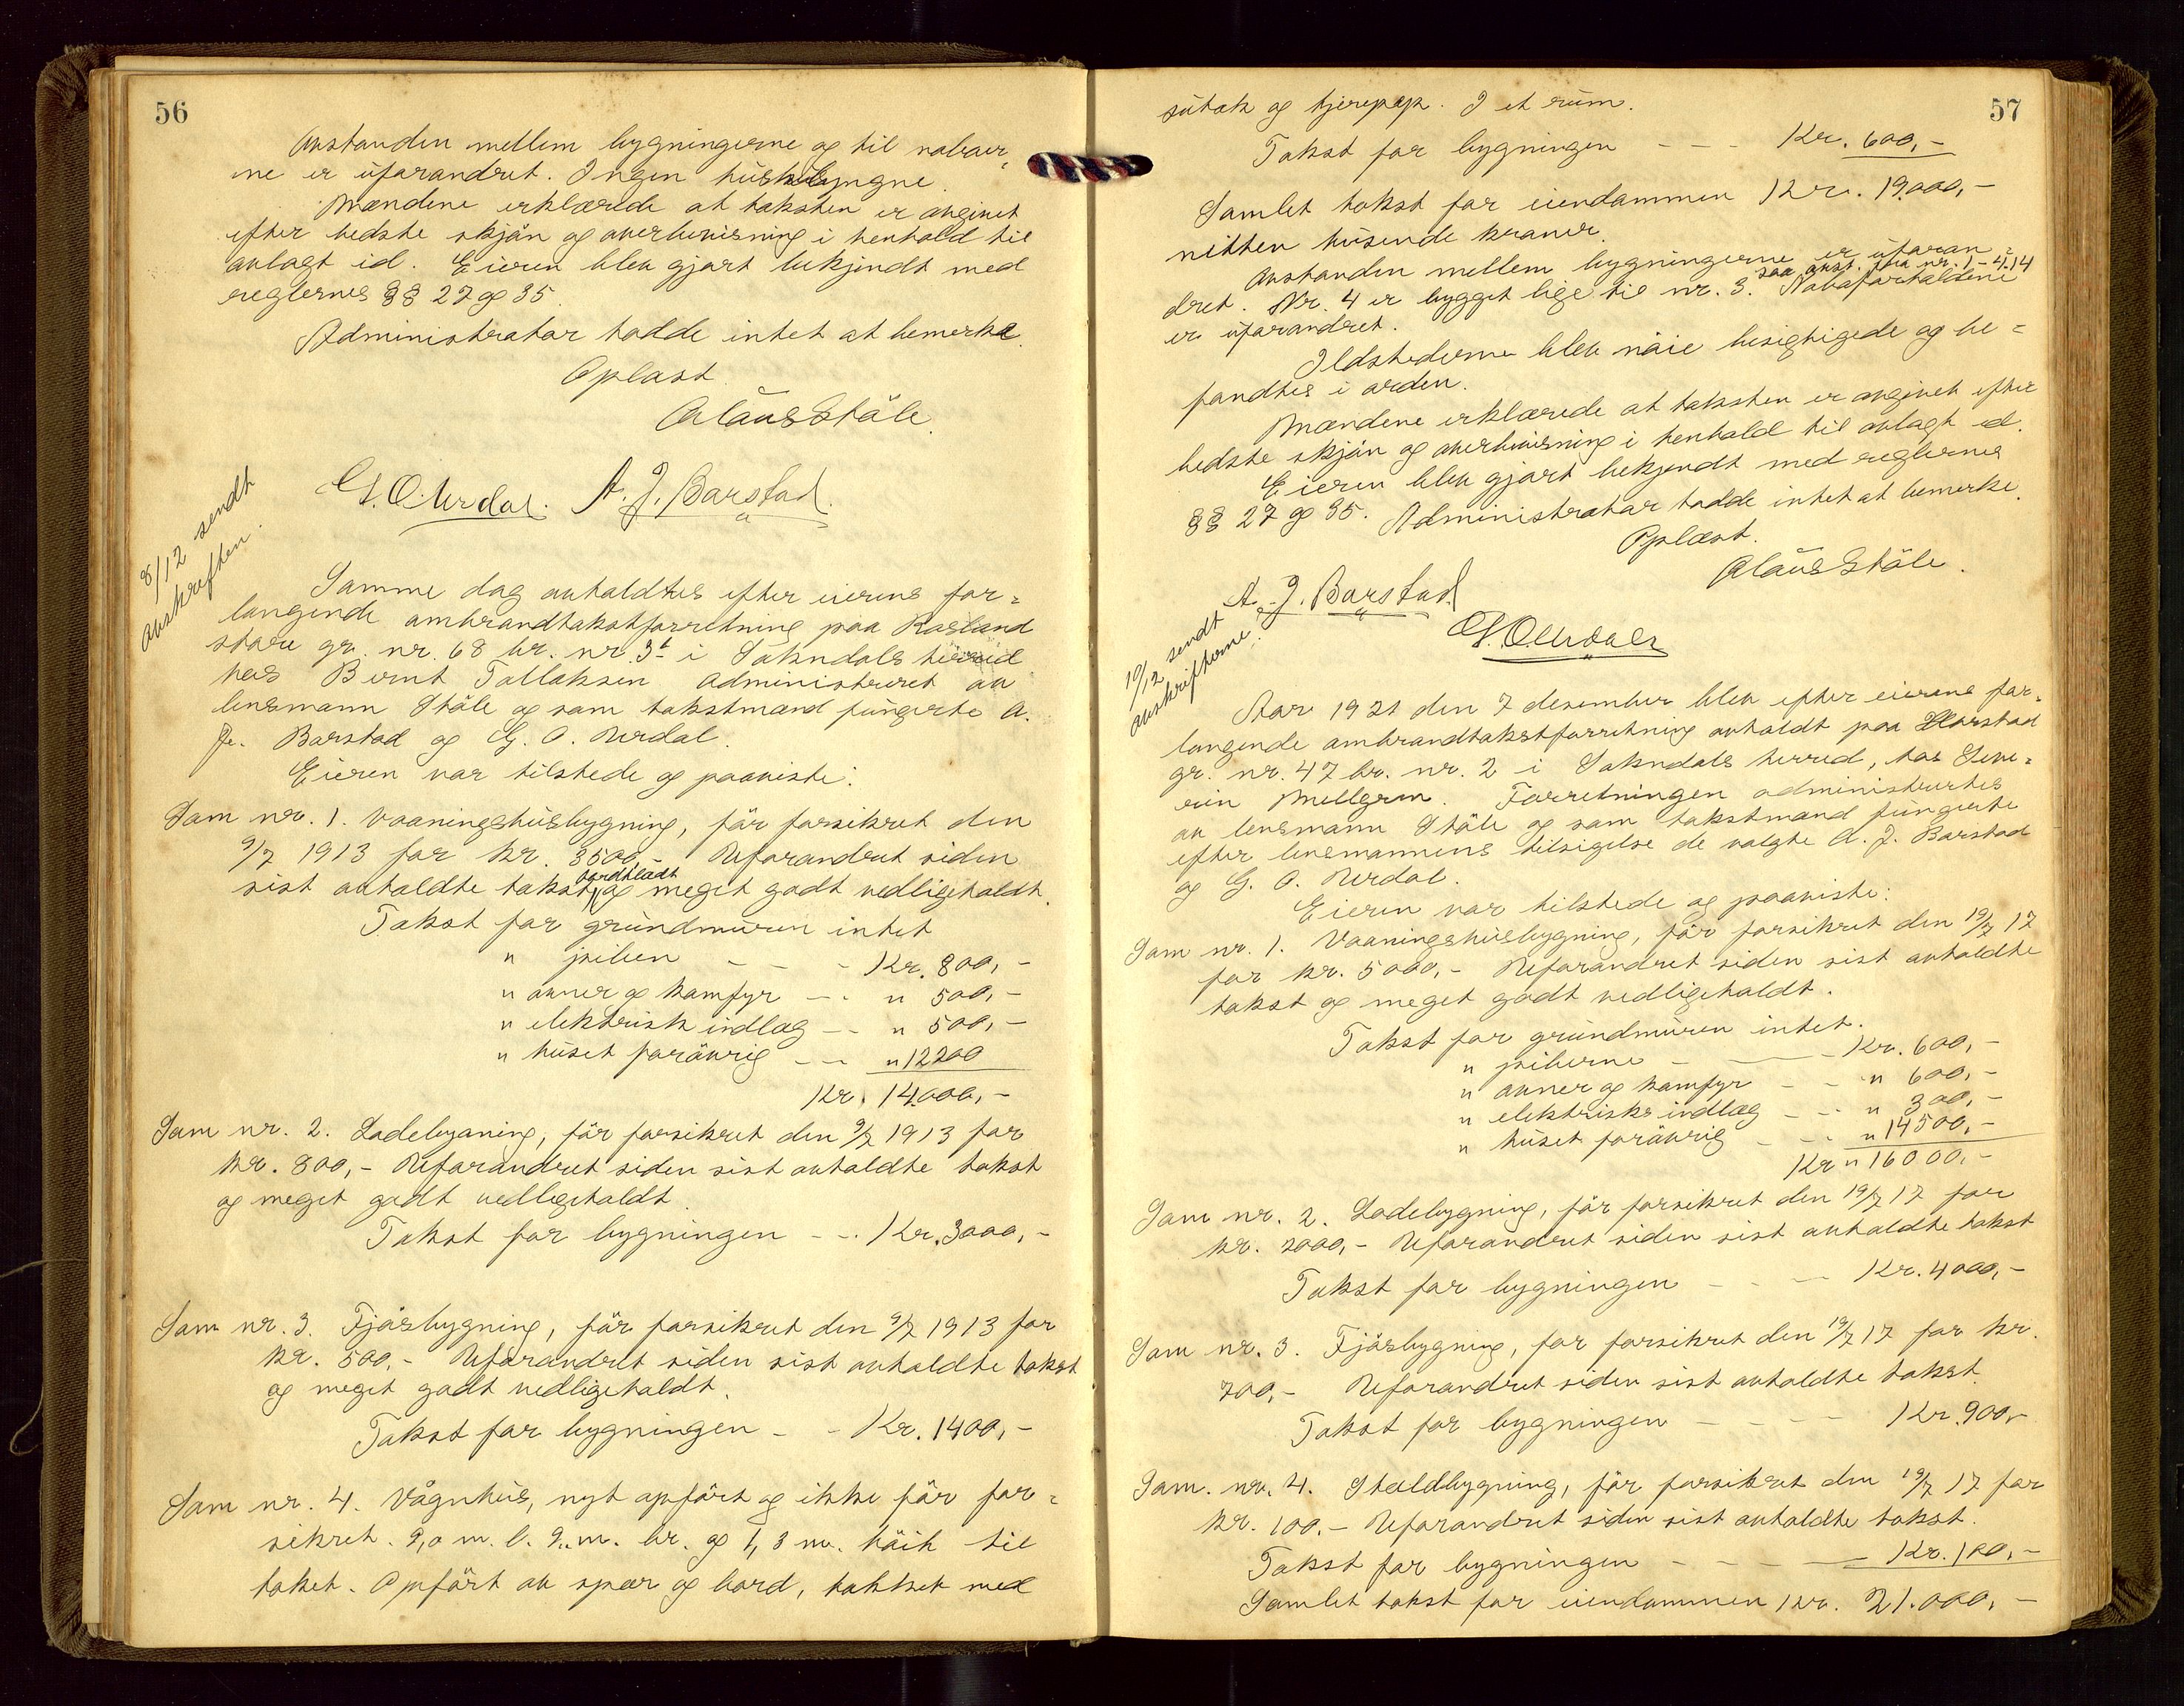 56
Avstanden mellem bygningerne og til naboer-
ne er uforandret. Ingen husklyngne.
Mændene erklærede at taksten er avgivet
efter bedste skjøn og overbevisning i henhold til
avlagt ed. Eieren blev gjort bekjendt med
reglernes §§ 27 og 35.
Administrator hadde intet at bemerke.
Oplæst.
Olaus Ståle.
G. O. Urdal. A. J. Barstad.
8/12 sendt
avskriften.
Samme dag avholdtes efter eierens for=
langende ombrandtakstforretning paa Rosland
store gr. nr. 68 br. nr. 3 i Sokndals herred
hos Bernt Tollaksen. Administreret av
lensmann Ståle og som takstmænd fungerte A.
J. Barstad og G. O. Urdal.
Eieren var tilstede og paaviste:
Som nr. 1. Vaaningshusbygning, før forsikret den
9/7 1913 for kr. 3500,- Uforandret siden
sist avholdte takst bordklædt og meget godt vedligeholdt.
Takst for grundmuren intet
" piben - - - Kr. 800,-
" ovner og komfyr - - " 500,-
" elektrisk indlæg - - " 500,-
" huset forøvrig - - " 12200
Kr. 14.000,-
Som nr. 2. Ladebygning, før forsikret den 9/7 1913 for
kr. 800,- Uforandret siden sist avholdte takst
og meget godt vedligeholdt.
Takst for bygningen - - Kr. 3000,-
Som nr. 3. Fjøsbygning, før forsikret den 9/7 1913 for
kr. 500,- Uforandret siden sist avholdte takst
og meget godt vedligeholdt.
Takst for bygningen - - Kr. 1400,-
Som nr. 4. Vågnhus, nyt opført og ikke før for=
sikret. 9,0 m. l. 9,. m. br. og 1,8 m. høih til
taket. Opført av spær og bord, takket med
57
sutak og tjerepap. I et rum.
Takst for bygningen - - - Kr. 600,-
Samlet takst for eiendommen Kr. 19.000,-
nitten tusende kroner.
Avstanden mellem bygningerne er uforan=
dret. Nr. 4 er bygget lige til nr. 3. saa avst. fra nr. 1-4.14 Naboforholdene
er uforandret.
Ildstederne blev nøie besigtigede og be=
fandtes i orden.
Mændene erklærede at taksten er avgivet efter
bedste skjøn og overbevisning i henhold til avlagt ed.
Eieren blev gjort bekjendt med reglernes
§§ 27 og 35. Administrator hadde intet at bemerke.
Oplæst.
Olaus Ståle.
A. J. Barstad
G. O. Urdal
10/12 sendt
avskrifterne.
Aar 1921 den 7 desember blev efter eierens for=
langende ombrandtakstforretning avholdt paa Harstad
gr. nr. 47 br. nr. 2 i Sokndals herred, hos Seve=
rin Mellgren. Forretningen administrertes
av lensmann Ståle og som takstmænd fungerte
efter lensmannens tilsigelse de valgte A. J. Barstad
og G. O. Urdal.
Eieren var tilstede og paaviste:
Som nr. 1. Vaaningshusbygning, før forsikret den 19/7 17
for kr. 5000,- Uforandret siden sist avholdte
takst og meget godt vedligeholdt.
Takst for grundmuren intet.
" piberne - - Kr. 600,-
" ovner og komfyr - - " 600,-
" elektriske indlæg - - " 300,-
" huset forøvrig - - " 14500,-
Kr " 16000,-
Som nr. 2. Ladebygning, før forsikret den 19/7 17 for
kr. 2000,- Uforandret siden sist avholdte takst
Takst for bygningen - - - Kr. 4000,-
Som nr. 3. Fjøsbygning, før forsikret den 19/7 17 for kr.
700,- Uforandret siden sist avholdte takst.
Takst for bygningen - - - - Kr. 900,-
Som. nr. 4. Staldbygning, før forsikret den 19/7 17 for
kr. 100,- Uforandret siden sist avholdte takst.
Takst for bygningen - - - - Kr. 100,-
Samlet takst for eiendommen Kr. 21.000,-